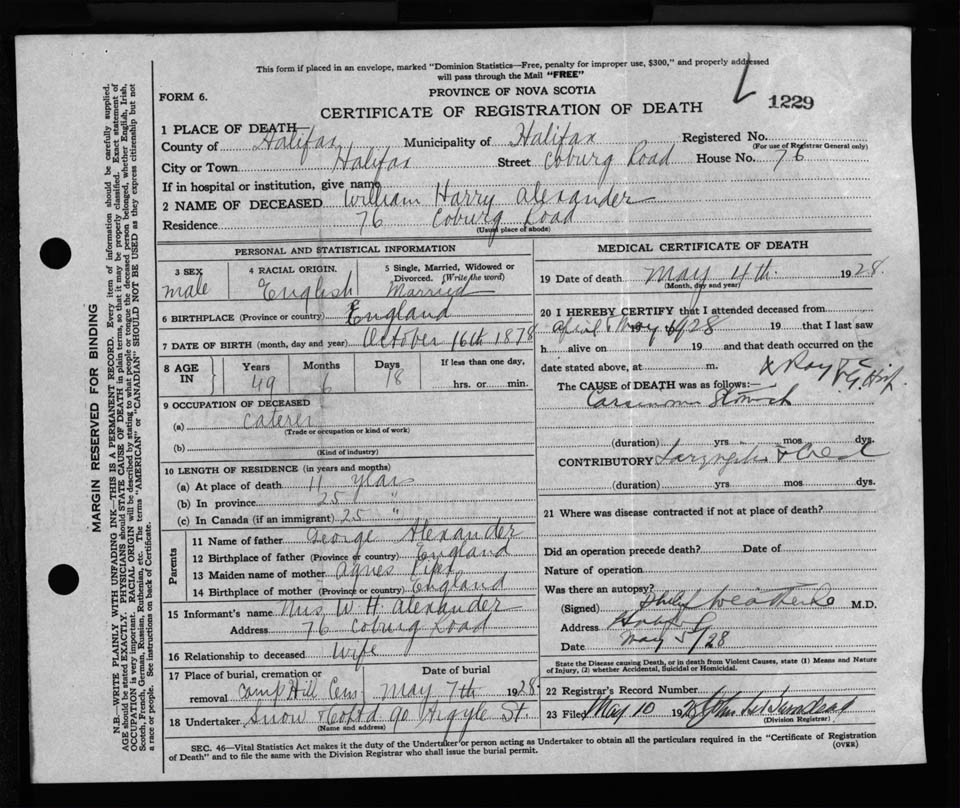 This form if placed in an envelope, marked "Dominion Statistics—Free, penalty for improper use, $300," and properly addressed
will pass through the Mail "FREE"
FORM 6.
PROVINCE OF NOVA SCOTIA
CERTIFICATE OF REGISTRATION OF DEATH
1229
1 PLACE OF DEATH
County of Halifax Municipality of Halifax Registered No.
(For use of Registrar General only)
City or Town Halifax Street Coburg Road House No. 76
If in hospital or institution, give name
2 NAME OF DECEASED William Harry Alexander
Residence 76 Coburg Road
(Usual place of abode)
PERSONAL AND STATISTICAL INFORMATION
3 SEX
male
4 RACIAL ORIGIN.
English
5 Single, Married, Widowed or
Divorced. (Write the word)
Married
6 BIRTHPLACE (Province or country) England
7 DATE OF BIRTH (month, day and year) October 16th 1878
8 AGE IN
Years 49
Months 6
Days 18
If less than one day,
hrs. or min.
9 OCCUPATION OF DECEASED
(a) caterer
(Trade or occupation or kind of work)
(b)
(Kind of industry)
10 LENGTH OF RESIDENCE (in years and months)
(a) At place of death 11 years
(b) In province 25 "
(c) In Canada (if an immigrant) 25 "
Parents
11 Name of father George Alexander
12 Birthplace of father (Province or country) England
13 Maiden name of mother Agnes
14 Birthplace of mother (Province or country) England
15 Informant's name Mrs W. H. Alexander
Address 76 Coburg Road
16 Relationship to deceased wife
17 Place of burial, cremation or
removal Camp Hill Cem
Date of burial
May 7th 1928
18 Undertaker Snow & Co Ltd 90 Argyle St.
(Name and address)
MEDICAL CERTIFICATE OF DEATH
19 Date of death May 4th 1928
(Month, day and year)
20 I HEREBY CERTIFY that I attended deceased from
April 19 to May 1928 19 that I last saw
h alive on 19 and that death occurred on the
date stated above, at m.
X Ray V. G. Hosp.
The CAUSE of DEATH was as follows:
Carcinoma Stomach
(duration) yrs mos dys.
CONTRIBUTORY
(duration) yrs mos dys.
21 Where was disease contracted if not at place of death?
Did an operation precede death? Date of
Nature of operation
Was there an autopsy?
(Signed) Philip Weatherbe M.D.
Address Halifax
Date May 5/28
State the Disease causing Death, or in death from Violent Causes, state (1) Means and Nature
of Injury, (2) whether Accidental, Suicidal or Homicidal.
22 Registrar's Record Number
23 Filed May 10 1928
(Division Registrar)
SEC. 46—Vital Statistics Act makes it the duty of the Undertaker or person acting as Undertaker to obtain all the particulars required in the "Certificate of Registration
of Death" and to file the same with the Division Registrar who shall issue the burial permit.
(OVER)
MARGIN RESERVED FOR BINDING
N.B.—WRITE PLAINLY WITH UNFADING INK—THIS IS A PERMANENT RECORD. Every item of information should be carefully supplied.
AGE should be stated EXACTLY. PHYSICIANS should STATE CAUSE OF DEATH in plain terms, so that it may be properly classified. Exact statement of
OCCUPATION is very important. RACIAL ORIGIN will be described by stating to what people or tongue the deceased person belonged, whether English, Irish,
Scotch, French, German, Russian, Ruthenian, etc. The terms "AMERICAN" or "CANADIAN" SHOULD NOT BE USED as they express citizenship but not
a race or people. See instructions on back of Certificate.